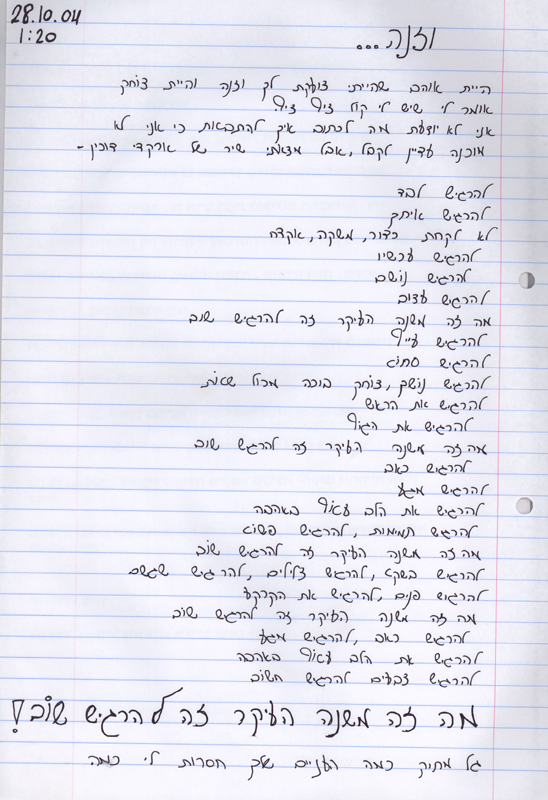 28.10.04
1:20
וזנה...
היית אוהב שהייתי צועקת לך וזנה והיית צוחק
אומר לי שיש לי קול ציף ציף
אני לא יודעת מה לכתוב איך להתבטאות כי אני לא
מוכנה עדיין לקבל, אבל מצאתי שיר של ארקדי דוכין -
להרגיש לבד
להרגיש איתך
לא לקחת כדור, משקה, אקדח
להרגיש עכשיו
להרגיש נושם
להרגיש עצוב
מה זה משנה העיקר זה להרגיש שוב
להרגיש עייף
להרגיש סחוט
להרגיש נושם, צוחק בוכה מרוב שטות
להרגיש את הראש
להרגיש את הגוף
מה זה משנה העיקר זה להרגיש שוב
להרגיש כאב
להרגיש מגע
להרגיש את הלב עטוף באהבה
להרגיש תמימות, להרגיש פשוט
מה זה משנה העיקר זה להרגיש שוב
להרגיש בשקט, להרגיש צלילים, להרגיש שגשם
להרגיש פנים, להרגיש את הקרקע
מה זה משנה העיקר זה להרגיש שוב
להרגיש כאב, להרגיש מגע
להרגיש את הלב עטוף באהבה
להרגיש צבעים להרגיש חשוב
מה זה משנה העיקר זה להרגיש שוב!
גל מתוק כמה העניים שלך חסרות לי כמה